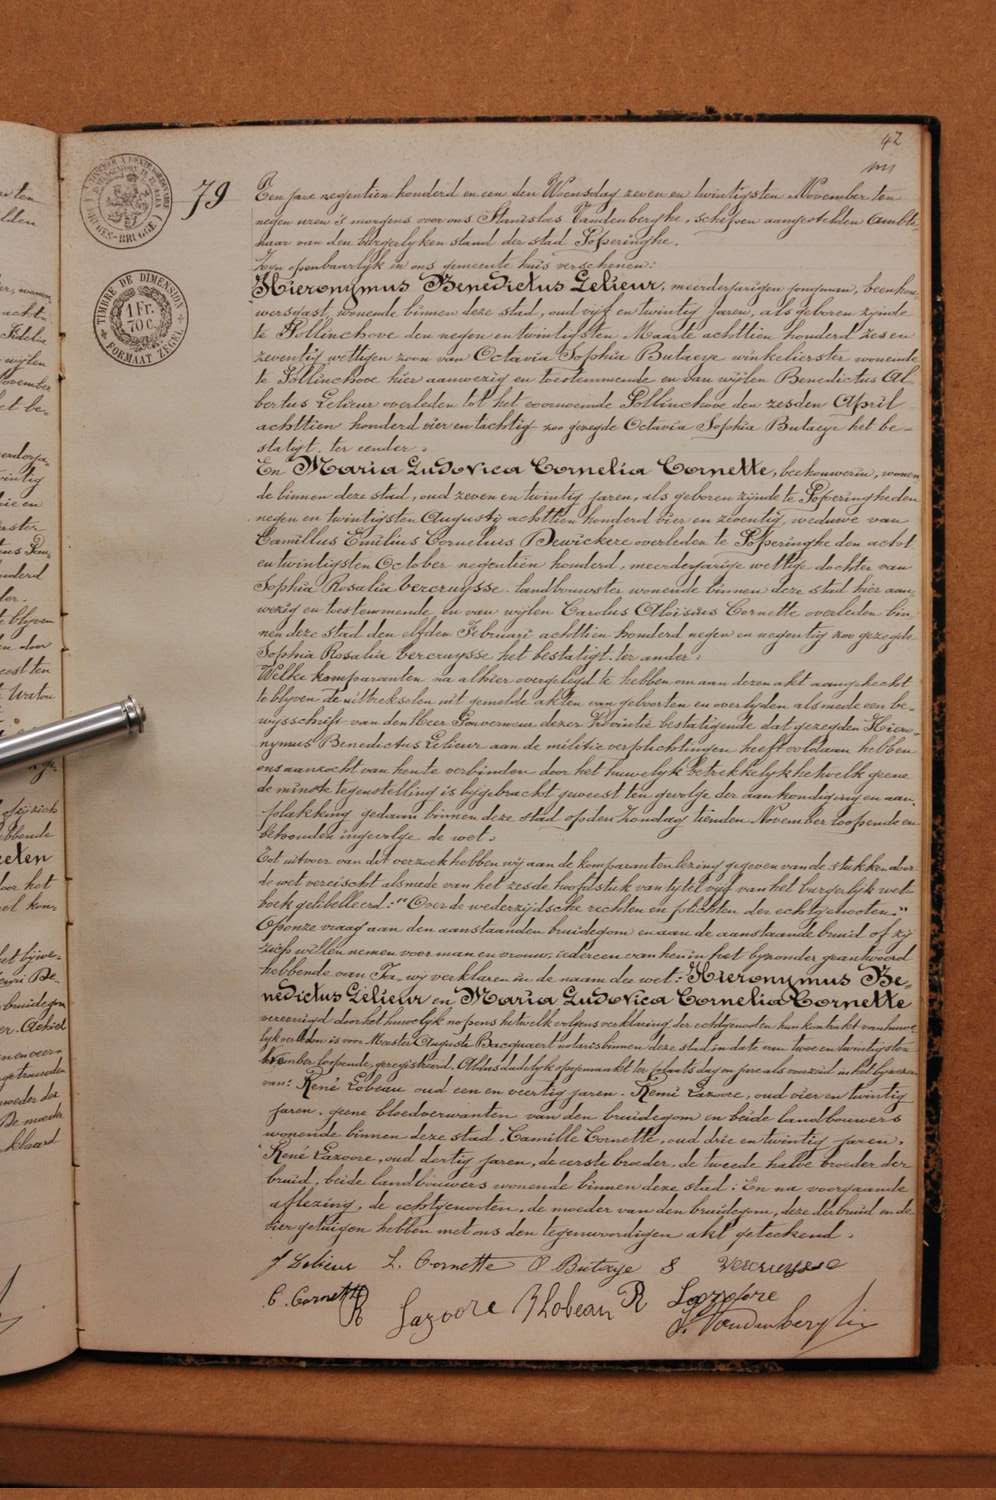 42
79
Een jare negentien honderd en een den Woensdag zeven en twintigsten November ten
negen uren 's morgens voor ons Stanislas Vandenberghe, schepen aangestelden Ambte-
naar van den burgerlyken stand der stad Poperinghe.
Zyn openbaarlyk in ons gemeente huis verschenen:
Hieronymus Benedictus Lelieur, meerderjarigen jongman, beenhou-
wersgast, wonende binnen deze stad, oud vyf en twintig jaren, als geboren zynde
te Pollinchove den negen en twintigsten Maarte achttien honderd zes en
zeventig wettigen zoon van Octavia Sophia Butaeye winkelierster wonende
te Pollinchove hier aanwezig en toestemmende en van wylen Benedictus Al-
bertus Lelieur overleden tot het voornoemde Pollinchove den zesden April
achttien honderd vier en tachtig zoo gezegde Octavia Sophia Butaeye het be-
statigt, ter eender.
En Maria Ludovica Cornelia Cornette, beenhouwerin, wonen-
de binnen deze stad, oud zeven en twintig jaren, als geboren zynde te Poperinghe den
negen en twintigsten Augusty achttien honderd vier en zeventig, weduwe van
Camillus Emilius Cornelius Dewickere overleden te Poperinghe den acht
en twintigsten October negentien honderd, meerderjarige wettige dochter van
Sophia Rosalia Vercruysse landbouwster wonende binnen deze stad hier aan-
wezig en toestemmende, en van wylen Carolus Aloisius Cornette overleden bin-
nen deze stad den elfden Februari achttien honderd negen en negentig zoo gezegde
Sophia Rosalia Vercruysse het bestatigt, ter ander:
Welke komparanten na alhier overgelegd te hebben om aan dezen akt aangehecht
te blyven de uittrekselen uit gemelde akten van geboorten en overlyden alsmede een be-
wysschrift van den Heer Gouverneur dezer Provintie bestatigende dat gezegden Hiero-
nymus Benedictus Lelieur aan de militie verplichtingen heeft voldaan hebben
ons aanzocht van hen te verbinden door het huwelyk betrekkelyk hetwelk geene
de minste tegenstelling is bygebracht geweest ten gevolge der aankondiging en aan-
plakking gedaan binnen deze stad op den Zondag tienden November loopende en
behouden ingevolge de wet.
Tot uitvoer van dit verzoek hebben wy aan de komparanten lezing gegeven van de stukken door
de wet vereischt alsmede van het zesde hoofdstuk van tytel vyf van het burgerlyk wet-
boek getibelleerd: "Over de wederzydsche rechten en plichten der echtgenooten."
Op onze vraag aan den aanstaanden bruidegom en aan de aanstaande bruid of zy
zich willen nemen voor man en vrouw, iedereen van hen in het byzonder geantwoord
hebbende van Ja, wy verklaren in de naam der wet: Hieronymus Be-
nedictus Lelieur en Maria Ludovica Cornelia Cornette
vereenigd door het huwelyk nopens hetwelk volgens verklaring der echtgenooten hun kontrakt van huwe-
lyk verleden is voor Meester Auguste Bacquaert notaris binnen deze stad in date van twee en twintigsten
November loopende, geregistreerd. Aldus dadelyk opgemaakt ter plaats dag en jare als vooren in het bywezen
van: René Lobeau oud een en veertig jaren. Remi Lazoore, oud vier en twintig
jaren, geene bloedverwanten van den bruidegom en beide landbouwers
wonende binnen deze stad. Camille Cornette, oud drie en twintig jaren,
René Lazoore, oud dertig jaren, de eerste broeder, de tweede halve broeder der
bruid, beide landbouwers wonende binnen deze stad: En na voorgaande
aflezing, de echtgenooten, de moeder van den bruidegom, deze der bruid en de
vier getuigen hebben met ons den tegenwoordigen akt geteekend.
J Lelieur L. Cornette O Butaye S Vercruysse
C. Cornette R Lazoore R Lobeau R Lazoore
S. Vandenberghe
TIMBRE DE DIMENSION
1 Fr.
70 C.
FORMAAT ZEGEL